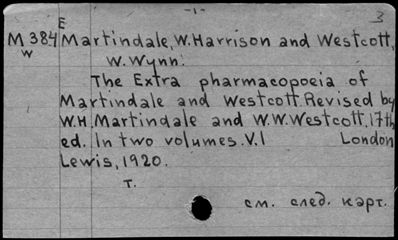 -1-
3
E
M 384 Martindale, W. Harrison and Westcott,
w W. Wynn.
The Extra pharmacopoeia of
Martindale and Westcott. Revised by
W.H. Martindale and W.W. Westcott. 17th
ed. In two volumes. V.I London
Lewis, 1920.
т.
см. след. карт.